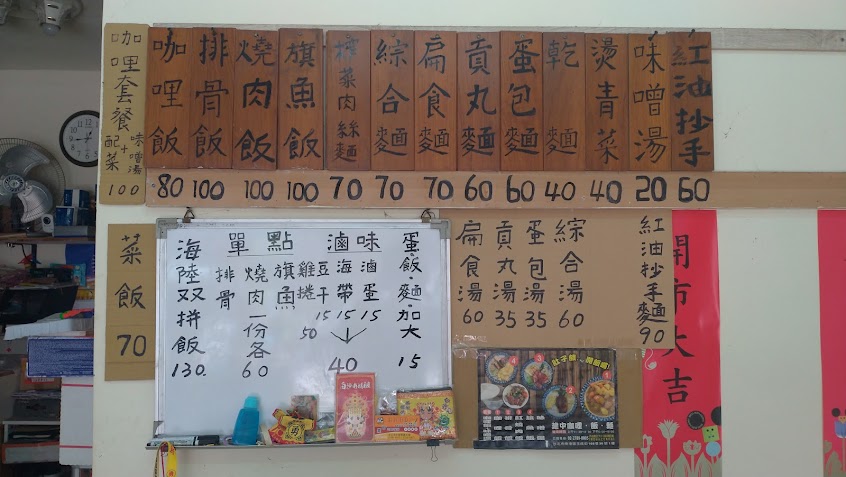 咖哩套餐
配菜+味噌湯
100
咖哩飯 80
排骨飯 100
燒肉飯 100
旗魚飯 100
榨菜肉絲麵 70
綜合麵 70
扁食麵 70
貢丸麵 60
蛋包麵 60
乾麵 40
燙青菜 40
味噌湯 20
紅油抄手 60
菜飯 70
海陸双拼飯 130.
單點
排骨
燒肉
旗魚
一份各 60
雞捲 50
滷味
豆干 15
海帶 15
滷蛋 15
40
蛋·飯·麵·加大 15
扁食湯 60
貢丸湯 35
蛋包湯 35
綜合湯 60
紅油抄手麵 90
開市大吉